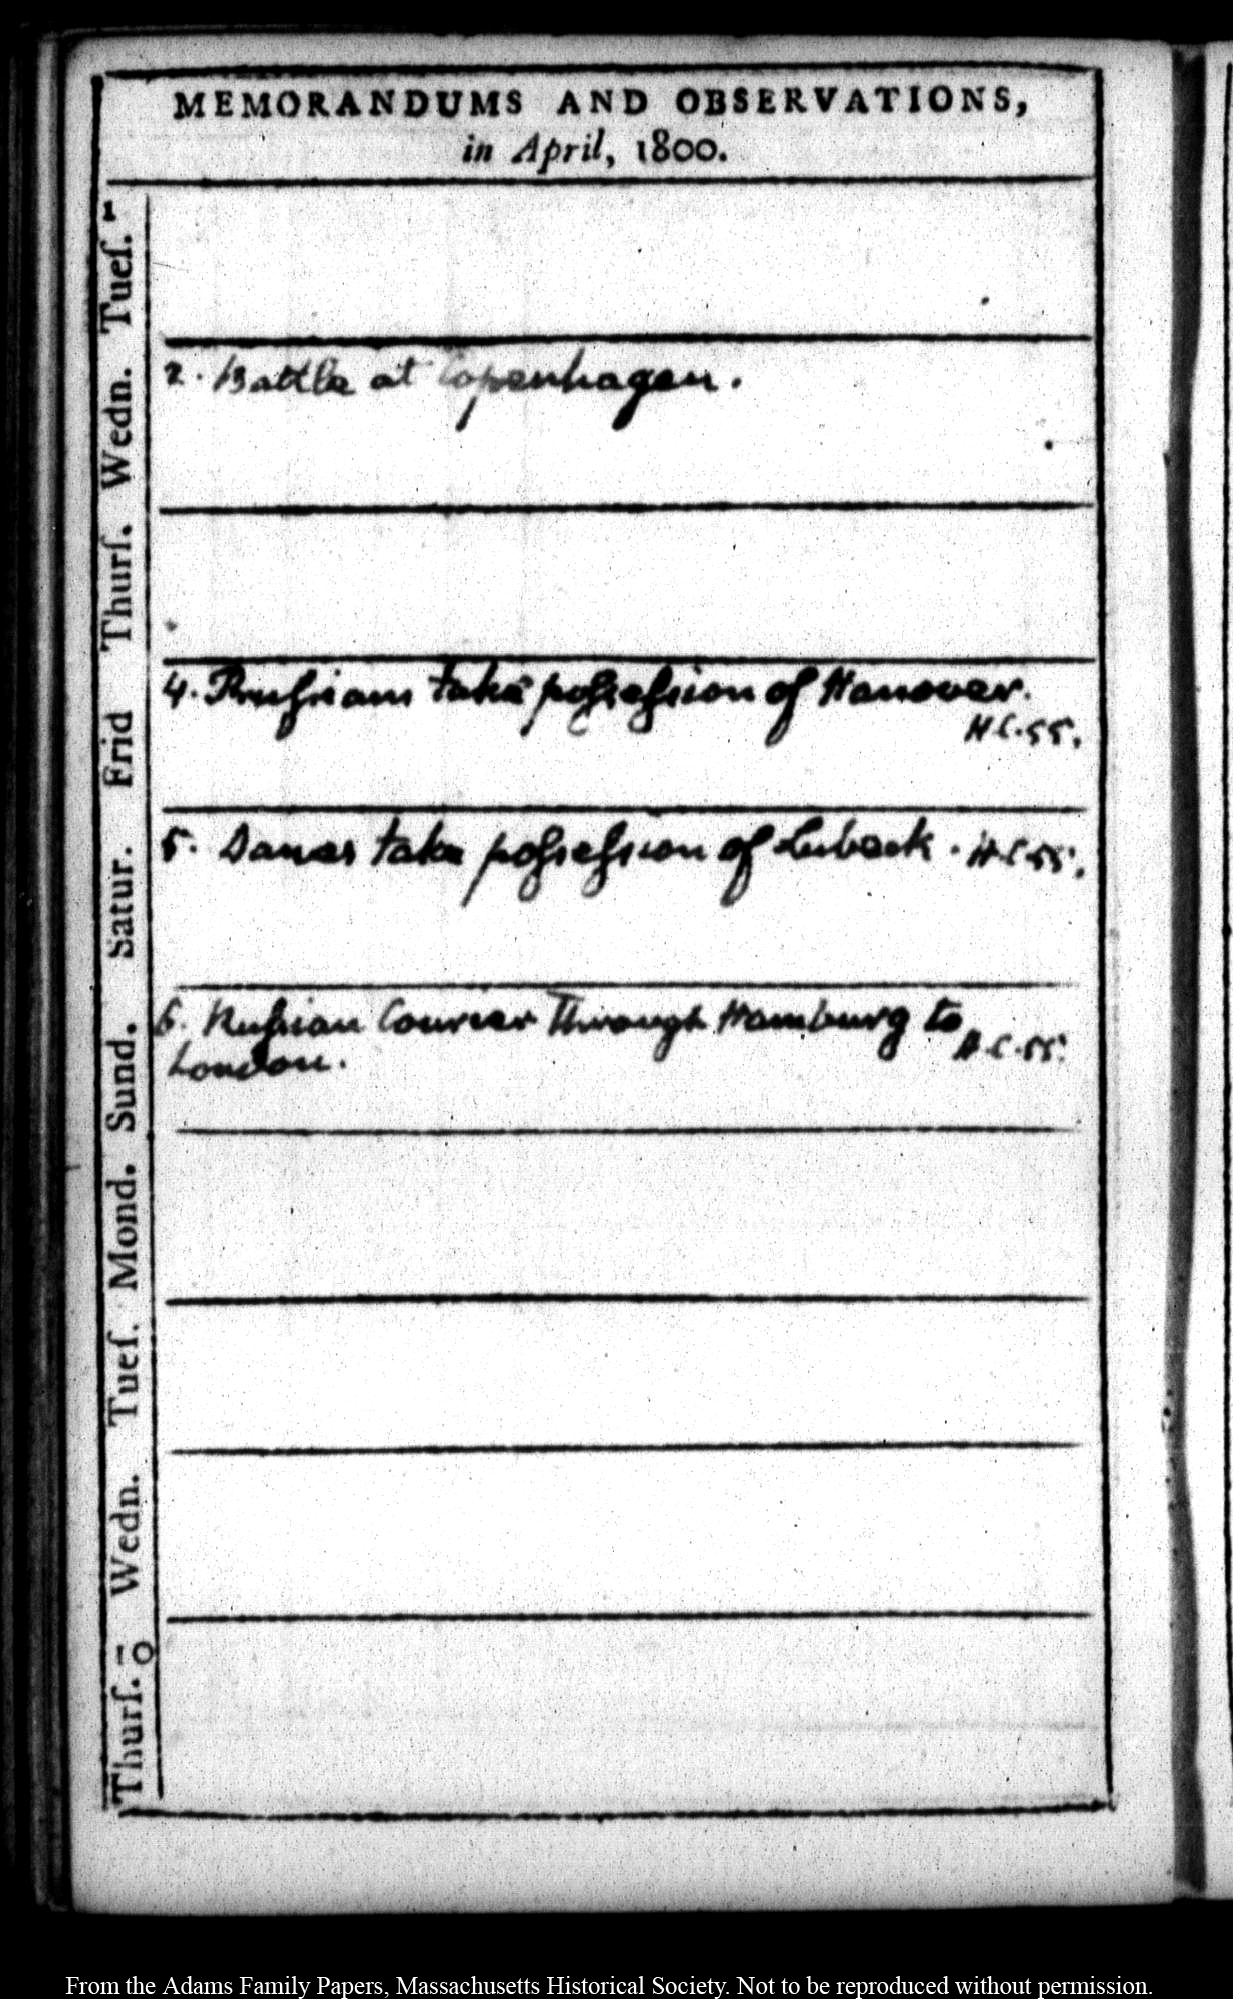 MEMORANDUMS AND OBSERVATIONS,
in April, 1800.
1
Tueſ.
Wedn.
2. Battle at Copenhagen.
Thurſ.
Frid
4. Pruſsians take poſseſsion of Hanover.
H C. 55.
Satur.
5. Danes take poſseſsion of Lubeck. H C 55.
Sund.
6. Ruſsian Courier Through Hamburg to
London. H. C. 55.
Mond.
Tueſ.
Wedn.
10
Thurſ.
From the Adams Family Papers, Massachusetts Historical Society. Not to be reproduced without permission.